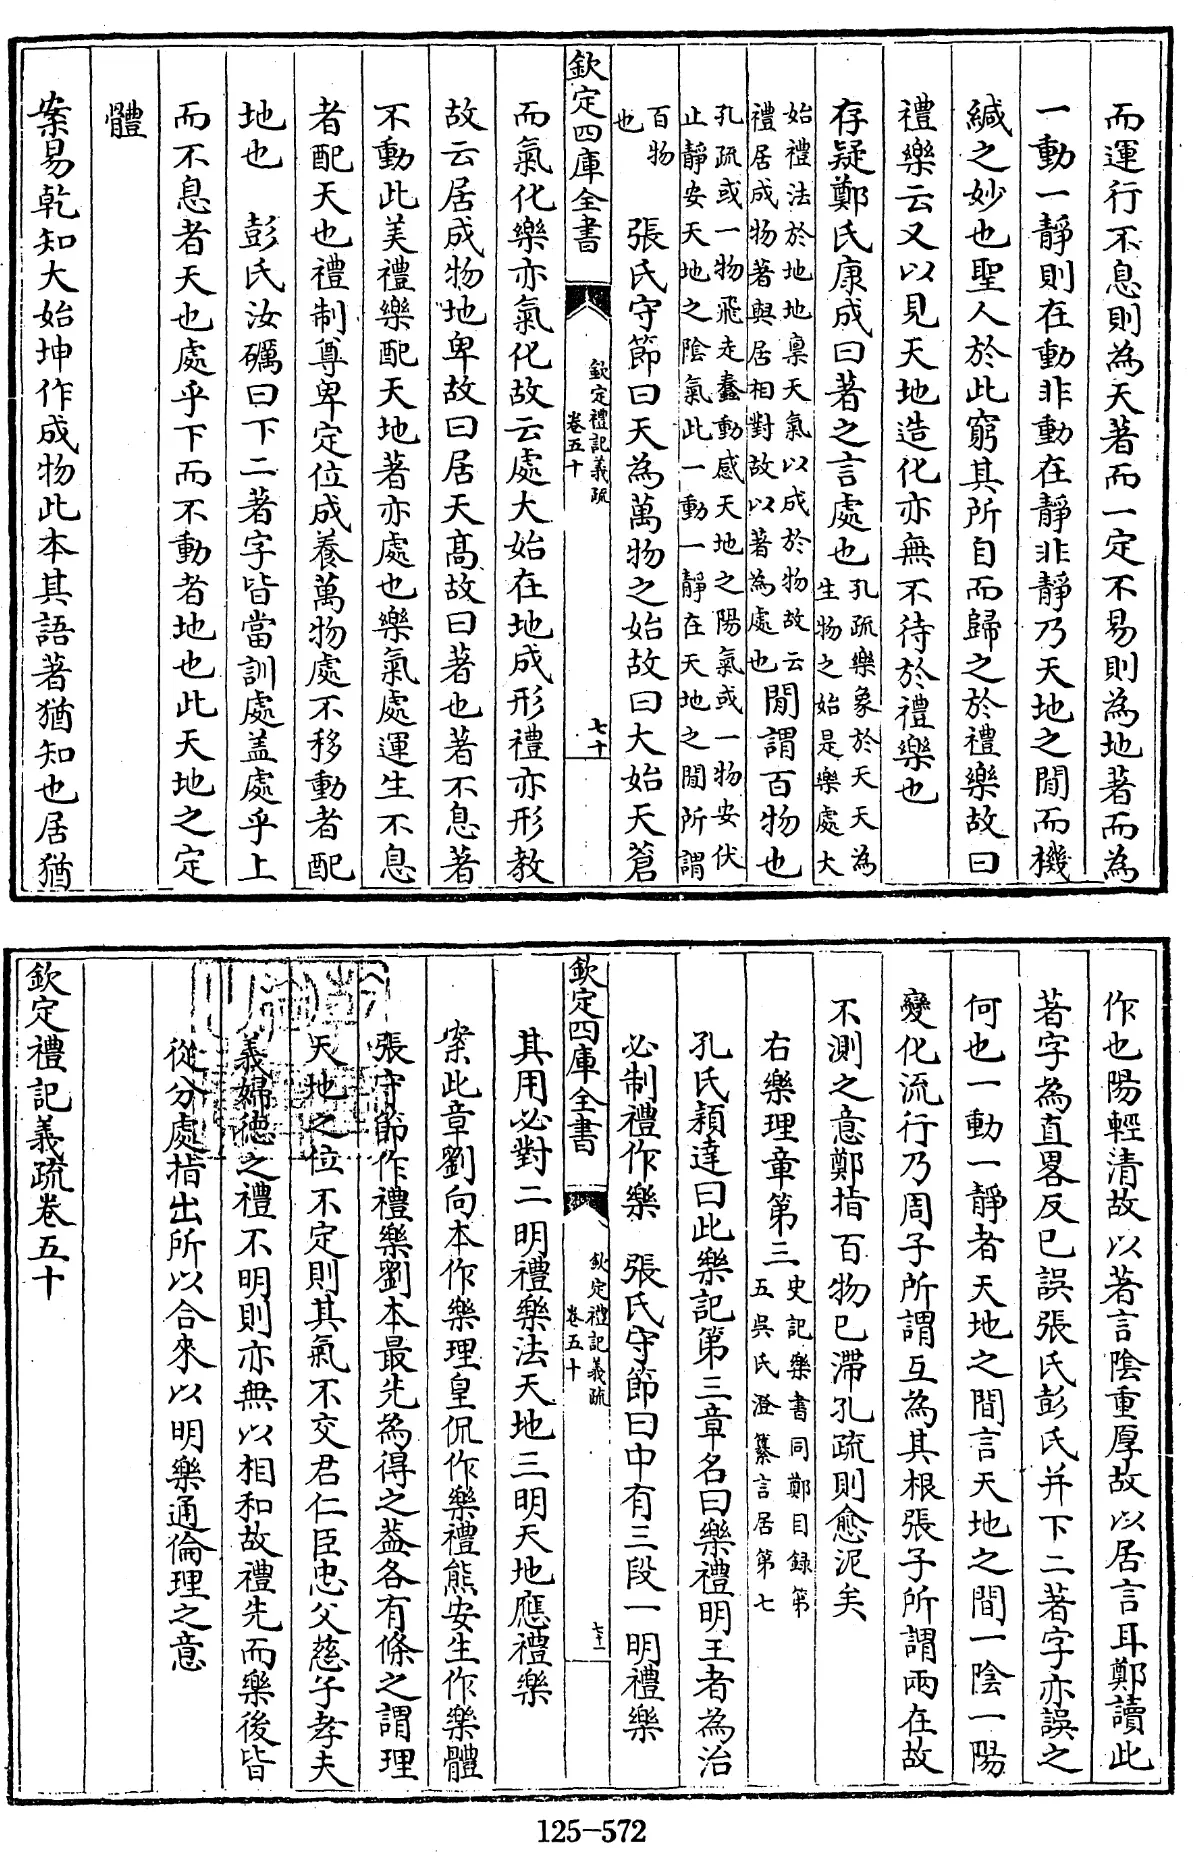 而運行不息則為天著而一定不易則為地著而為
一動一靜則在動非動在靜非靜乃天地之間而機
緘之妙也聖人於此窮其所自而歸之於禮樂故曰
禮樂云又以見天地造化亦無不待於禮樂也
存疑鄭氏康成曰著之言處也
孔疏樂象於天天為
生物之始是樂處大
始禮法於地地稟天氣以成於物故云
禮居成物著與居相對故以著為處也
間謂百物也
孔疏或一物飛走蠢動感天地之陽氣或一物安伏
止靜安天地之陰氣此一動一靜在天地之間所謂
百物
也
張氏守節曰天為萬物之始故曰大始天蒼
欽定四庫全書
欽定禮記義疏
卷五十
七十
而氣化樂亦氣化故云處大始在地成形禮亦形教
故云居成物地卑故曰居天高故曰著也著不息著
不動此美禮樂配天地著亦處也樂氣處運生不息
者配天也禮制尊卑定位成養萬物處不移動者配
地也 彭氏汝礪曰下二著字皆當訓處蓋處乎上
而不息者天也處乎下而不動者地也此天地之定
體
案易乾知大始坤作成物此本其語著猶知也居猶
作也陽輕清故以著言陰重厚故以居言耳鄭讀此
著字為直畧反已誤張氏彭氏并下二著字亦誤之
何也一動一靜者天地之間言天地之間一陰一陽
變化流行乃周子所謂互為其根張子所謂兩在故
不測之意鄭指百物已滯孔疏則愈泥矣
右樂理章第三
史記樂書同鄭目錄第
五吳氏澄纂言居第七
孔氏穎達曰此樂記第三章名曰樂禮明王者為治
必制禮作樂 張氏守節曰中有三段一明禮樂
欽定四庫全書
欽定禮記義疏
卷五十
七十一
其用必對二明禮樂法天地三明天地應禮樂
案此章劉向本作樂理皇侃作樂禮熊安生作樂體
張守節作禮樂劉本最先為得之蓋各有條之謂理
天地之位不定則其氣不交君仁臣忠父慈子孝夫
義婦德之禮不明則亦無以相和故禮先而樂後皆
從分處指出所以合來以明樂通倫理之意
欽定禮記義疏卷五十
125-572